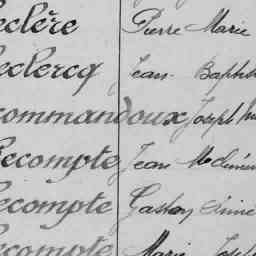 eclère Pierre Marie
eclercq Jean- Baptist
commandoux Joseph
Lecompte Jean
ecompte Gaston Aimé
ecompte Marie Joseph